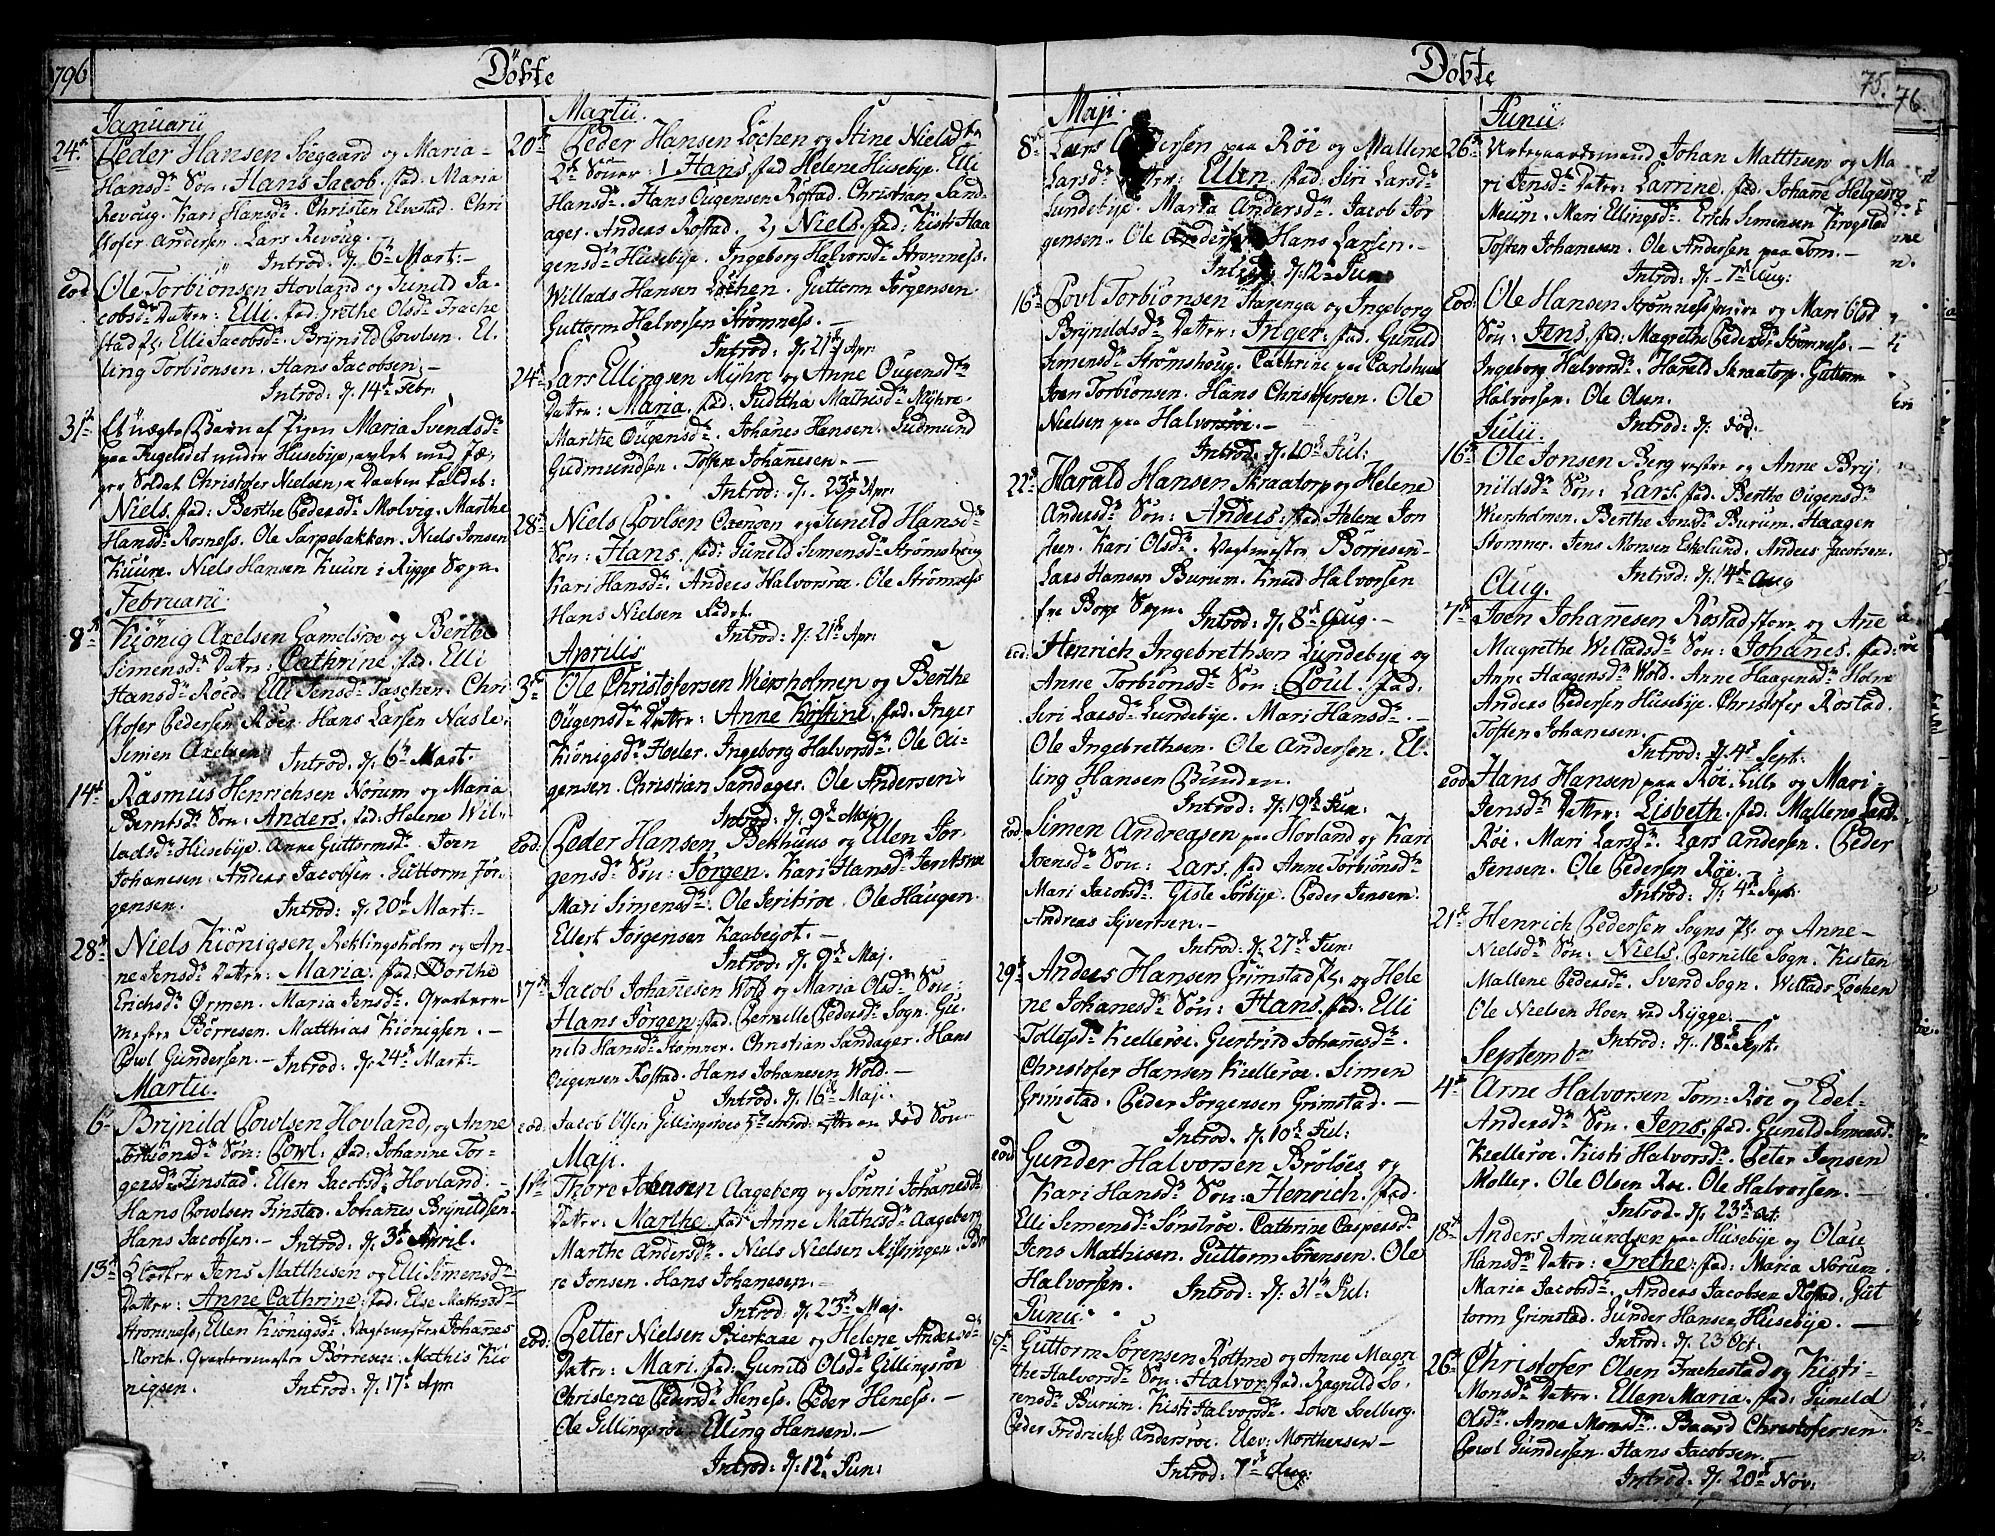 1796
Döbte
Januarii
24de Peder Hansen Soegaard og Maria
Hansdr Sön: Hans Jacob. fad. Maria
Revoug. Kari Hansdr. Christen Elvestad. Chri
stofer Andersen. Lars Revoug.
Introd. d. 6te Mart:
Eod Ole Torbiönsen Hovland og Gunild Ja-
cobsdr Datter: Elli. fad: Grethe Olsdr Frache
stad pl. Elli Jacobsdr. Brÿnild Povlsen. El-
ling Torbiönsen. Hans Jacobsen.
Introd: d. 14de Febr.
31te Et uægte Barn af Pigen Maria Svendsdr
paa Fugeledet under Husebÿe, avlet med Jæ-
ger Soldat Christofer Nielsen, i Daaben kaldet:
Niels. fad: Berthe Pedersdr Molvig. Marthe
Hansdr Rosness. Ole Sarpebakken. Niels Jonsen
Kuure. Niels Hansen Kuure i Rygge Sogn.
Februarii
8de Kiönig Axelsen Gamelsröe og Berthe
Simensdr Datter: Cathrine. fad. Elli
Hansdr Röed. Elli Jensdr Taschen. Chri
stofer Pedersen Röer. Hans Larsen Nasle.
Simen Axelsen. Introd. d. 6te Mart.
14de Rasmus Henrichsen Norum og Maria
Berntsdr Sön: Anders. fad: Helene Wil-
ladsdr Husebÿe. Anne Guttormsdr. Joen
Johanesen. Anders Jacobsen. Guttorm Jör-
gensen. Introd: d. 20de Mart:
28de Niels Kiönigsen Reklingsholm og An-
ne Jensdr Datter: Maria. fad: Dorthe
Erichsdr Ørmen. Maria Jensdr. Qvarteer-
mester Börresen. Matthias Kiönigsen.
Powl Gundersen. Introd: d. 24de Mart:
Martii.
6te Brÿnild Powlsen Hovland, og Anne
Torbionsdr Sön: Powl. fad: Johanne Tor-
gersdr Finstad. Ellen Jacobsdr Hovland.
Hans Powlsen Finstad. Johanes Brÿnildsen.
Hans Jacobsen. Introd: d. 3de April.
13de Klocker Jens Matthisen og Elli Simensdr
Datter: Anne Cathrine. fad: Else Mathisdr
Strömness, Ellen Kiönigsdr. Vagtmester Johanes
Morch. Qvarteermester Börresen. Mathis Kiö
nigsen. Introd: d. 17de Apr
Martii.
20de Peder Hansen Löchen og Stine Nielsdtr
2de Sönner: 1 Hans. fad Helene Husebÿe. Elli
Hansdr. Hans Ougensen Rostad. Christian Sand-
ager. Anders Rostad. 2, Niels. fad: Kisti Haa
gensdr Husebÿe. Ingeborg Halvorsdr Strømness.
Willads Hansen Löchen. Guttorm Jörgensen
Guttorm Halvorsen Strömness.
Introd: d. 21de Apr.
24de Lars Ellingsen Mÿhre og Anne Ougensdtr
Datter: Maria. fad: Juditha Mathisdr Mÿhre.
Marthe Ougensdr. Johanes Hansen. Gudmund
Gudmundsen. Tosten Johanesen.
Introd: d. 23de Apr.
28de Niels Povlsen Oxengen og Gunild Hansdr
Sön: Hans. fad: Gunild Simensdr Strömshoug
Kari Hansdr. Anders Halvorsröe. Ole Strömness
Hans Nielsen Ledet.
Introd: d. 21de Apr:
Aprilis
3de Ole Christofersen Wiersholmen og Berthe
Ougensdr Datter: Anne Kirstine. fad. Inger
Kiönigsdr Hoeler. Ingeborg Halvorsdr. Ole Ou-
gensen. Christian Sandager. Ole Andersen.
Introd: d. 9de Maj.
Eod: Peder Hansen Bekhuus og Ellen Jör-
gensdr Sön: Jörgen. Kari Hansdr Jeriksröe
Mari Simensdr. Ole Jeriksröe. Ole Haugen.
Ellert Jörgensen Kaabegot.
Introd: d. 9de Maj.
17de Jacob Johanesen Wold og Maria Olsdr Sön:
Hans Jörgen. fad. Pernille Pedersdr Sogn. Gu-
nild Hansdr Stomner. Christian Sandager. Hans
Ougensen Rostad. Hans Johanesen Wold.
Introd: d. 16de Maj:
eod: Jacob Olsen Gillingsröes introd: efter en död Sön
Maji.
1ste Thore Johnsen Aageberg og Sönni Johanesdr
Datter: Marthe. fad: Anne Mathisdr Aageberg.
Marthe Andersdr. Niels Nielsen Kissingen.
re Jonsen. Hans Johanesen.
Introd: d. 23de Maj.
eod: Petter Nielsen Bierkaae og Helene Andersdr
Datter: Mari. fad: Gunild Olsdr Gillingsröe
Christence Pedersdr Heness. Peder Heness.
Ole Gillingsröe. Elling Hansen.
Introd: d. 12de Jun:
Döbte
75.
76.
Maji.
8de Lars Andersen paa Röi og Mallene
Larsdr Datter: Ellen. fad: Siri Larsdr
Lundebÿe. Maria Andersdr. Jacob Jör
gensen. Ole Andersen. Hans Larsen.
Introd: d. 12de Jun:
16de Povl Torbiönsen Harenga og Ingeborg
Brÿnildsdr Datter: Inger. fad. Gunild
Simensdr Strömshoug. Cathrine paa Carlshuus
Joen Torbiönsen. Hans Christofersen. Ole
Nielsen paa Halvorsröe.
Introd: d. 10de Jul:
22de Harald Hansen Skraatorp og Helene
Andersdr Sön: Anders. fad Helene Jon
steen. Kari Olsdr. Vagtmester Börresen.
Lars Hansen Burum. Knud Halvorsen
fra Borge Sogn. Introd: d. 8de Aug.
eod: Henrich Ingebrethsen Lundebÿe og
Anne Torbiönsdr Sön: Poul. fad.
Siri Larsdr Lundebÿe. Mari Hansdr.
Ole Ingebrethsen. Ole Andersen. El-
ling Hansen Bunden.
Introd: d. 19de Jun:
eod. Simen Andreasen paa Hovland og Kari
Joensdr Sön: Lars. fad Anne Torbiönsdr
Mari Jacobsdr. Gisle Sörbÿe. Peder Jensen.
Andreas Sÿvertsen.
Introd: d. 27de Jun:
29de Anders Hansen Grimstad pl. og Hele
ne Johanesdr Sön: Hans. fad: Elli
Tollefsdr Kiellerøe. Gurtrud Johanesdr.
Christofer Hansen Kiellerøe. Simen
Grimstad. Peder Jörgensen Grimstad.
Introd: d. 10de Jul:
eod Gunder Halvorsen Brölöes og
Kari Hansdr Sön: Henrich. fad.
Elli Simensdr Sönströe. Cathrine Caspersdr
Jens Mathisen. Guttorm Sörensen. Ole
Halvorsen. Introd: d. 31te Jul:
Junii.
Guttorm Sörensen Rothne og Anne Magre
the Halvorsdr Sön: Halvor. fad. Ragnild Sö-
rensdr Burum. Kisti Halvorsdr. Lowe Soelberg.
Peder Fredrichs. Andersröe. Elev: Morthensen
Introd: 7de Aug:
Junii.
26de Værtsgaardsmand Johan Matthisen og Ma
ri Jensdr Datter: Larrine. fad. Johanne Helgesdr
Meum. Mari Ellingsdr. Erich Simensen Krogstad
Tosten Johanesen. Ole Andersen paa Tom.
Introd: d. 7de Aug:
Eod: Ole Hansen Strömness nire og Mari Olsd
Sön: Jens. fad: Magrethe Pedersdr Strömness.
Ingeborg Halvorsdr. Harald Skraatorp. Guttorm
Halvorsen. Ole Olsen.
Introd: d. Eod:
Julii.
16de Ole Jonsen Berg vestre og Anne Brÿ-
nildsdr Sön: Lars. fad. Berthe Ougensdr
Wiersholmen. Berthe Jonsdr Burum. Haagen
Stomner. Jens Monsen Eskelund. Anders Jacobsen.
Introd: d. 14de Aug
Aug.
7de Joen Johanesen Rostad store og Ane
Magrethe Willadsdr Sön: Johanes. fad:
Anne Haagensdr Wold. Anne Haagensdr Holne
Anders Pedersen Husebÿe. Christofer Rostad.
Tosten Johanesen.
Introd: d. 4de Sept:
eod. Hans Hansen paa Röi lille og Mari
Jensdr Datter: Lisbeth. fad: Mallene Larsdr
Röi. Mari Larsdr. Lars Andersen. Peder
Jensen. Ole Pedersen Röi.
Introd: d. 4de Sept:
21de Henrich Pedersen Sogns pl. og Anne
Nielsdr Sön: Niels. Pernille Sogn. Kisten
Mallene Pedersdr. Svend Sogn. Willads Löchen
Ole Nielsen Hoen ved Rÿgge.
Introd: d. 18de Sept.
Septembr
4de Arne Halvorsen Tom: Röe og Edel
Andersdr Sön. Jens. fad: Gunild Simensdr
Kiellerøe. Kisti Halvorsdr. Peter Jensen
Moller. Ole Olsen Röe. Ole Halvorsen.
Introd: d. 23de Oct.
18de Anders Amundsen paa Husebÿe og Olau
Hansdr Datter: Grethe. fad: Maria Norum.
Maria Jacobsdr. Anders Jacobsen Rostad. Gut
torm Grimstad. Gunder Hansen Husebÿe.
Introd: d. 23 Oct.
26de Christofer Olsen Frachestad og Kisti
Monsdr Datter: Ellen Maria. fad: Gunild
Olsdr. Anne Monsdr. Baard Christofersen.
Powl Gundersen. Hans Jacobsen.
Introd: d. 20de Nov: